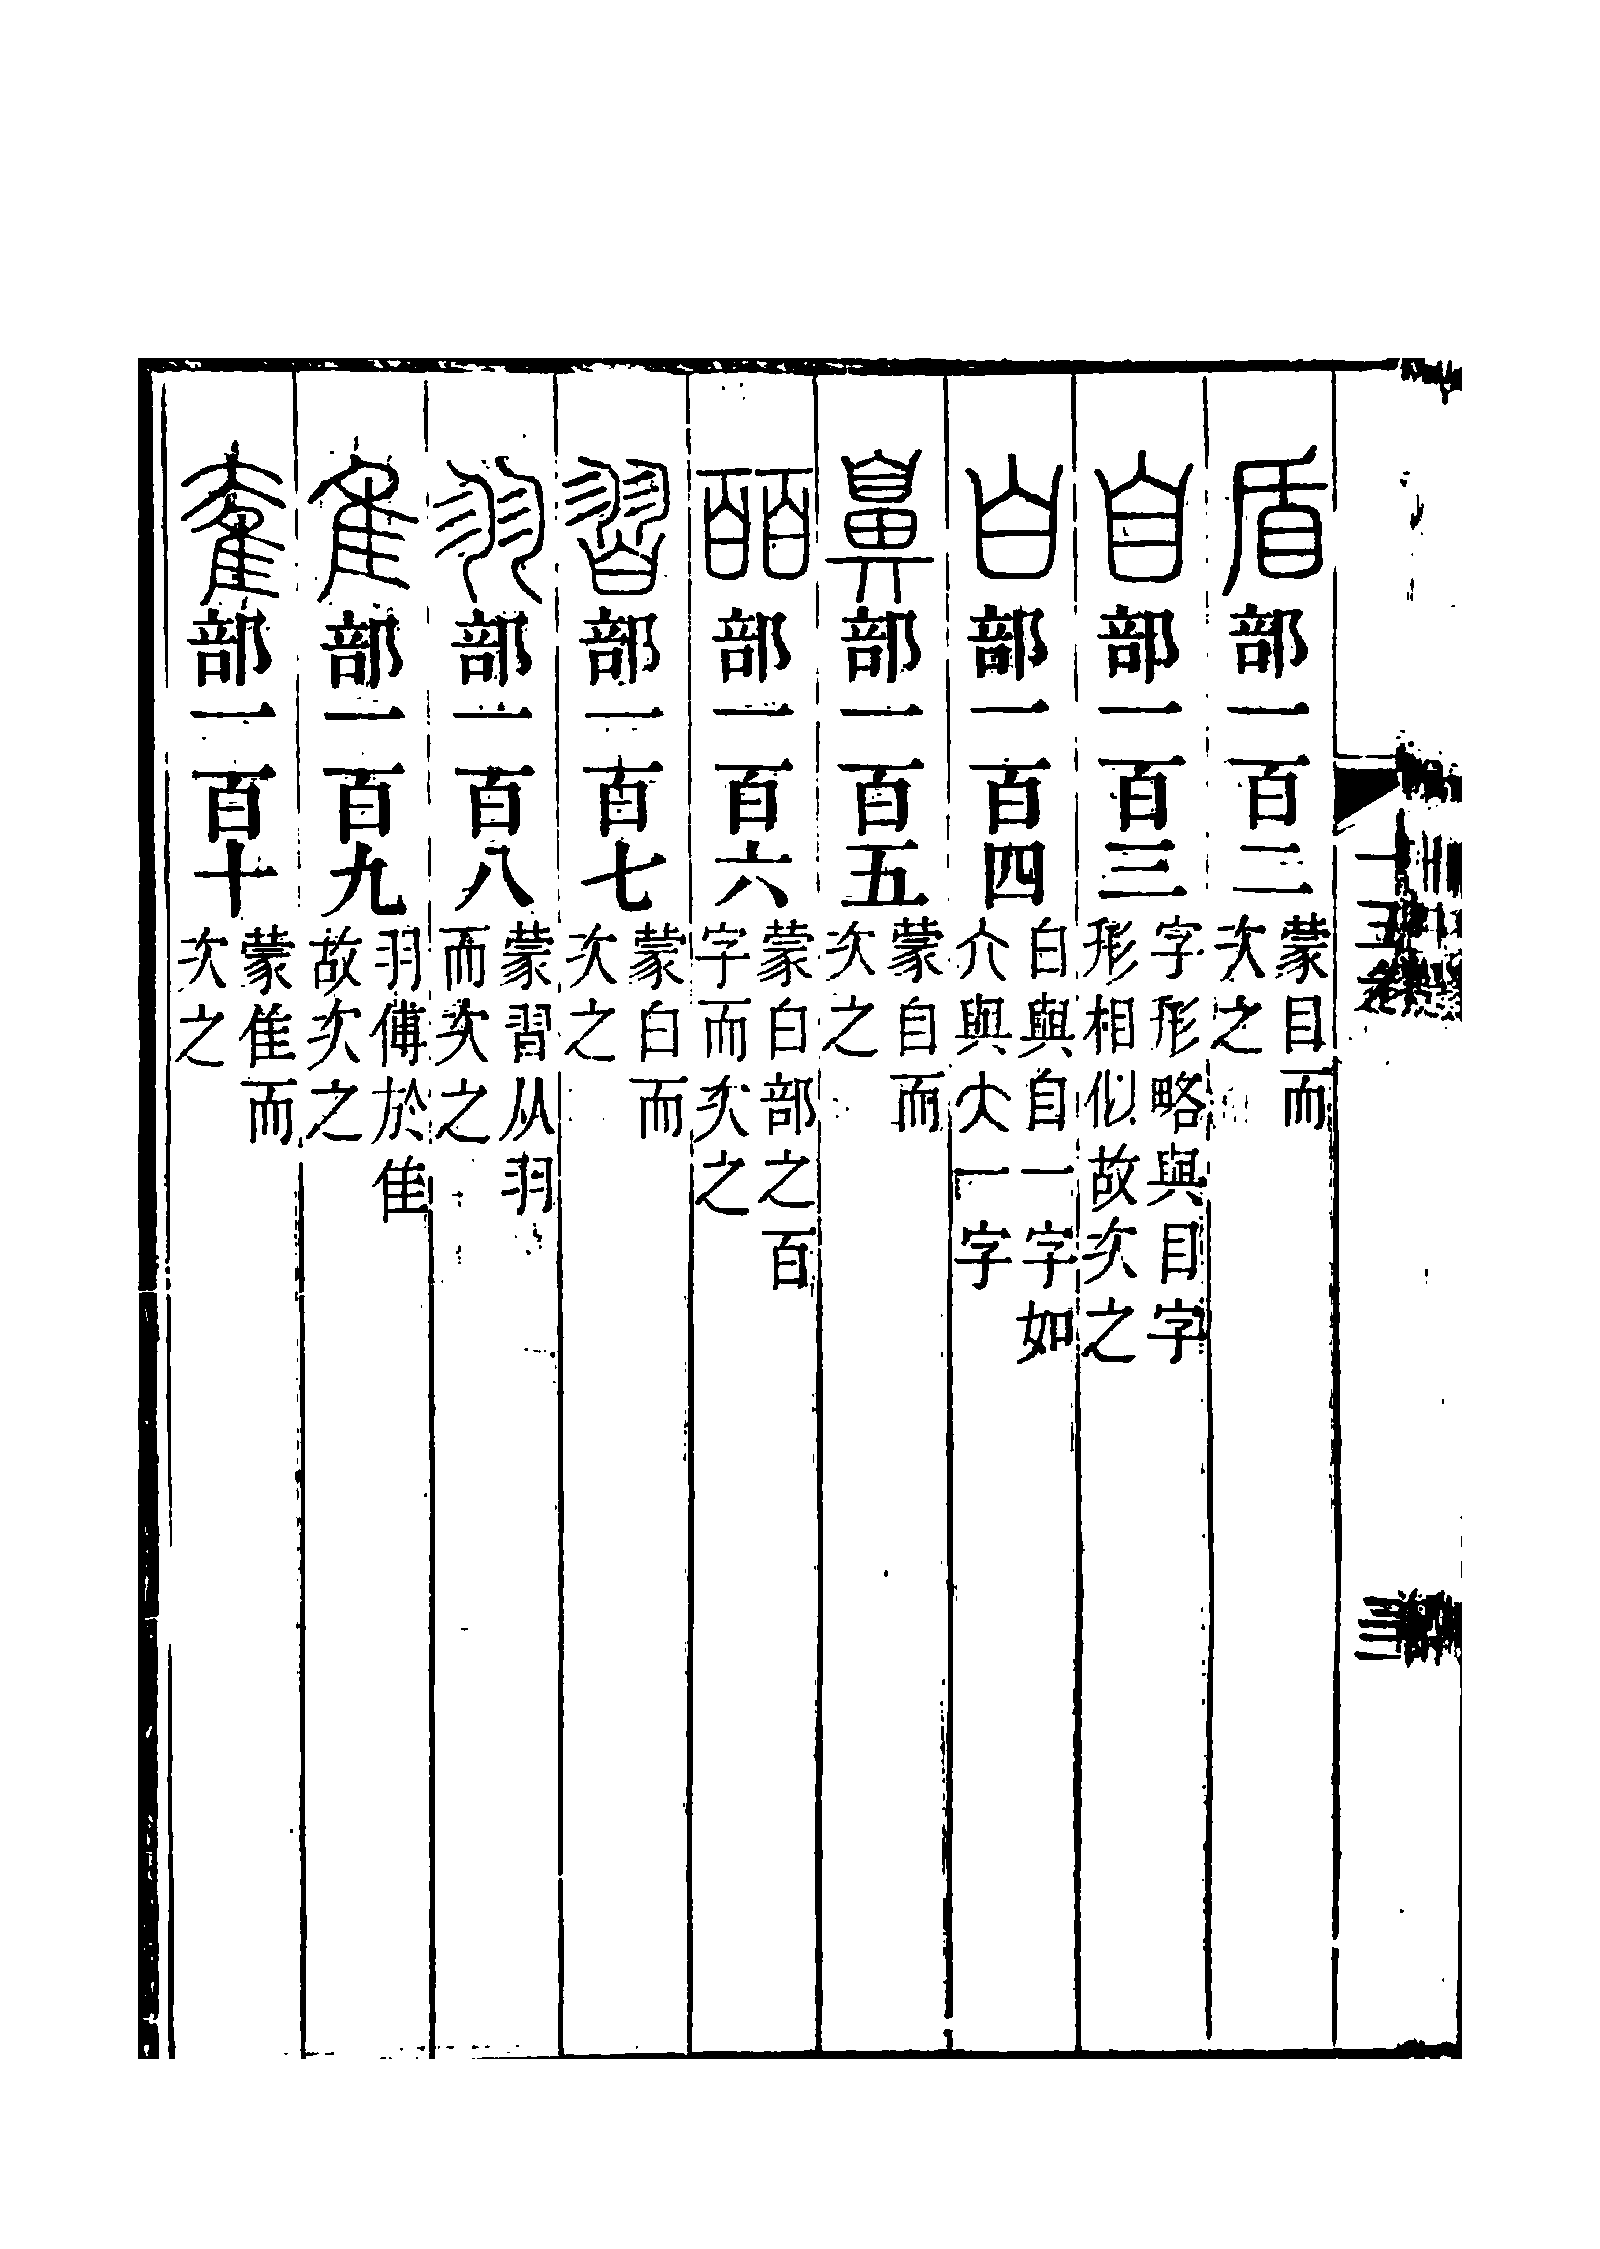 盾部一百二蒙目而次之
自部一百三字形略與目字形相似故次之
白部一百四白與自一字如𠘲與大一字
鼻部一百五蒙自而次之
皕部一百六蒙白部之百字而次之
習部一百七蒙白而次之
羽部一百八蒙習从羽而次之
隹部一百九羽傅於隹故次之
奞部一百十蒙隹而次之